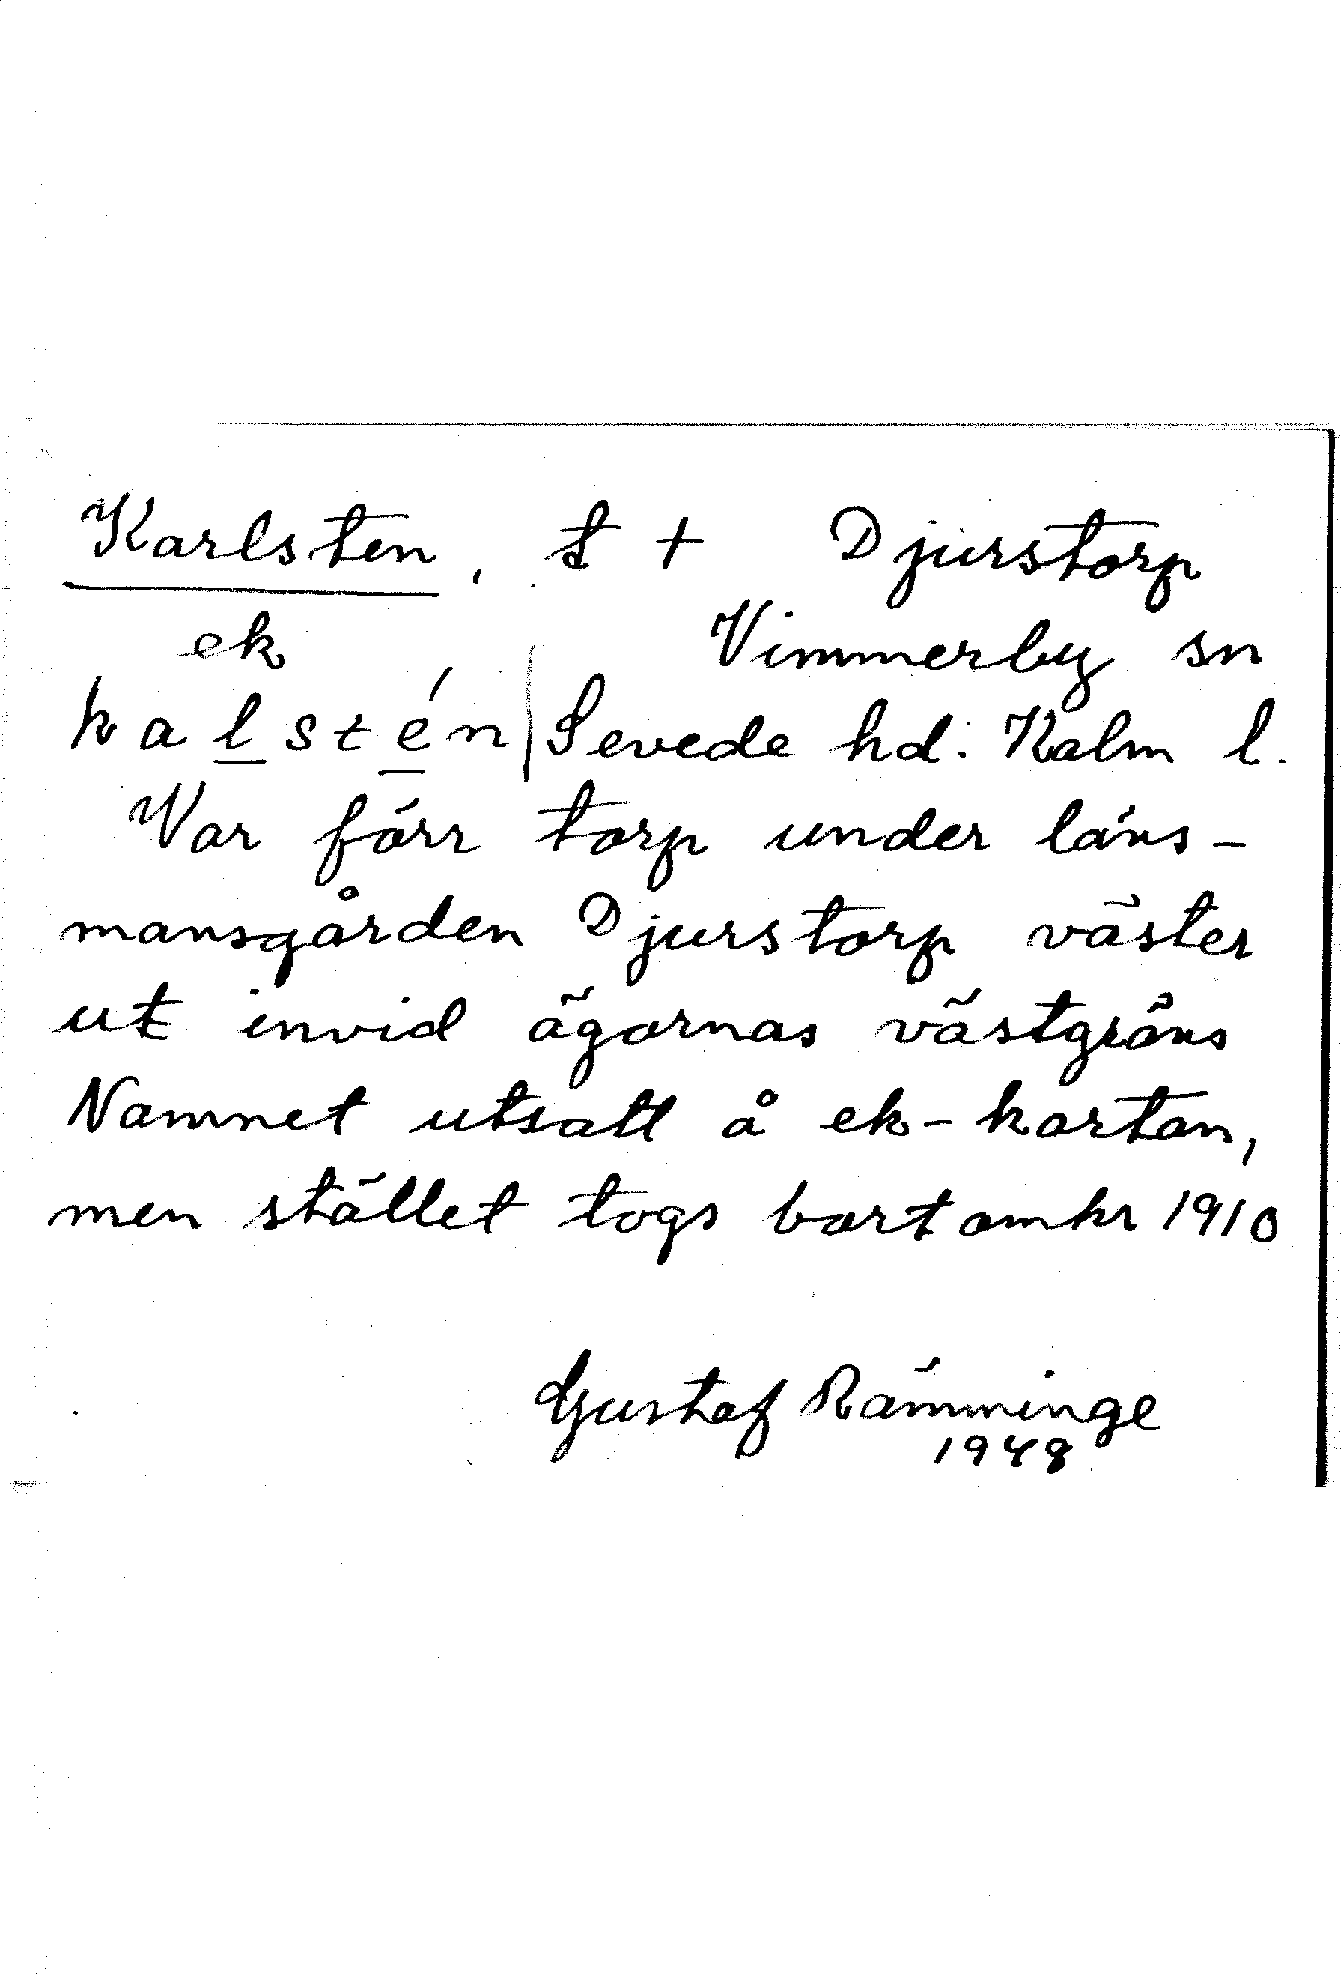 Karlsten, t + Djurstorp
ek Vimmerby sn
kalstén | Sevede hd. Kalm l.
Var förr torp under läns-
mansgården Djurstorp väster
ut invid ägornas västgräns
Namnet utsatt å ek-kartan,
men stället togs bort omkr 1910
Gustaf Rämminge
1948